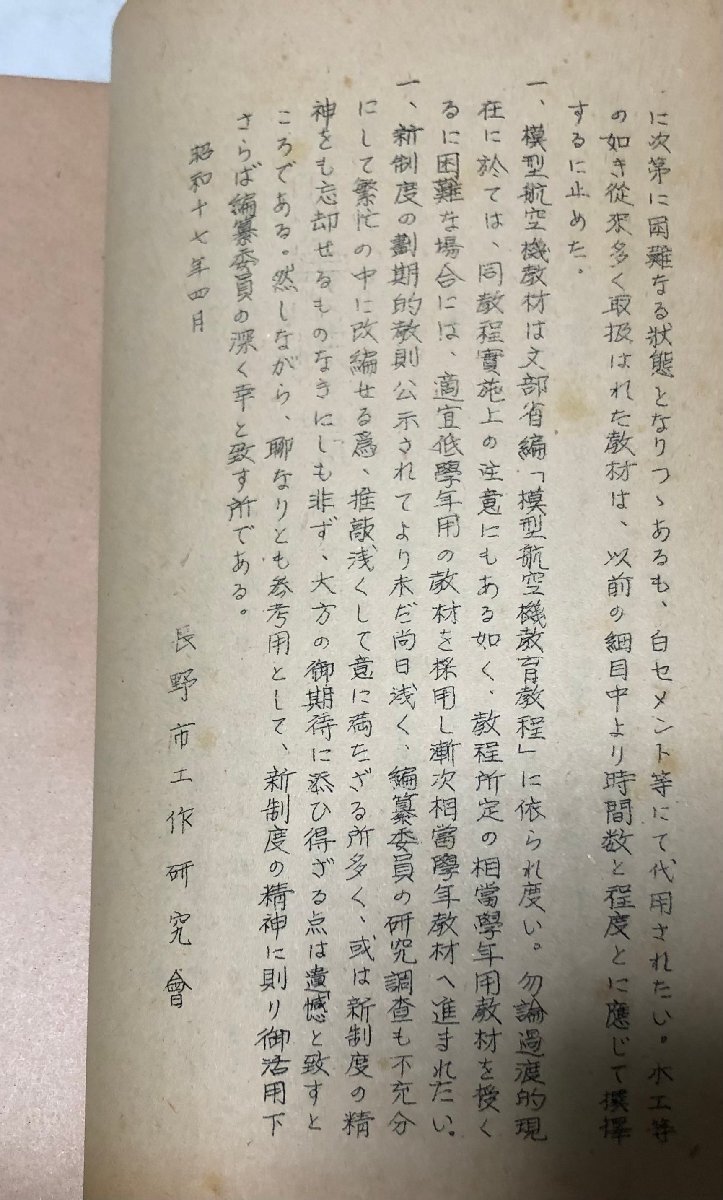 に次第に困難なる狀態となりつゝあるも、白セメント等にて代用されたい。木工等
の如き從來多く取扱はれた教材は、以前の細目中より時間数と程度とに應じて撰擇
するに止めた。
一、模型航空機教材は文部省編「模型航空機教育教程」に依られ度い。勿論過渡的現
在に於ては、同教程實施上の注意にもある如く、教程所定の相當學年用教材を授く
るに困難な場合には、適宜低學年用の教材を採用し漸次相當學年教材へ進まれたい。
一、新制度の劃期的教則公示されてより未だ尚日浅く、編纂委員の研究調査も不充分
にして繁忙の中に改編せる爲、推敲浅くして意に満たざる所多く、或は新制度の精
神をも忘却せるものなきにしも非ず、大方の御期待に添ひ得ざる点は遺憾と致すと
ころである。然しながら、聊なりとも参考用として、新制度の精神に則り御活用下
さらば編纂委員の深く幸と致す所である。
昭和十七年四月
長野市工作研究會